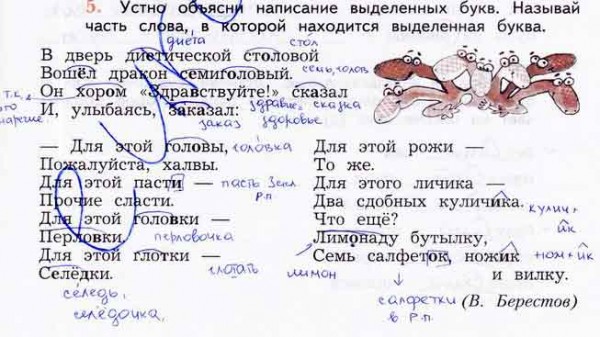 5. Устно объясни написание выделенных букв. Называй
часть слова, в которой находится выделенная буква.
диета
стол
В дверь диетической столовой
Вошёл дракон семиголовый.
семь, голов
Он хором «Здравствуйте!» сказал
т.к.
здравие, сказка
И, улыбаясь, заказал:
заказ здоровье
— Для этой головы,
головка
Пожалуйста, халвы.
Для этой пасти —
пасть 3скл.
Р.п.
Прочие сласти.
Для этой головки —
Перловки.
перловочка
Для этой глотки —
Селёдки.
глотать
сельдь,
селёдочка,
Для этой рожи —
То же.
Для этого личика —
Два сдобных куличика.
кулич+
ик
Что ещё?
Лимонаду бутылку,
лимон
Семь салфеток, ножик
нож+ик
и вилку.
салфетки
в Р.п.
(В. Берестов)